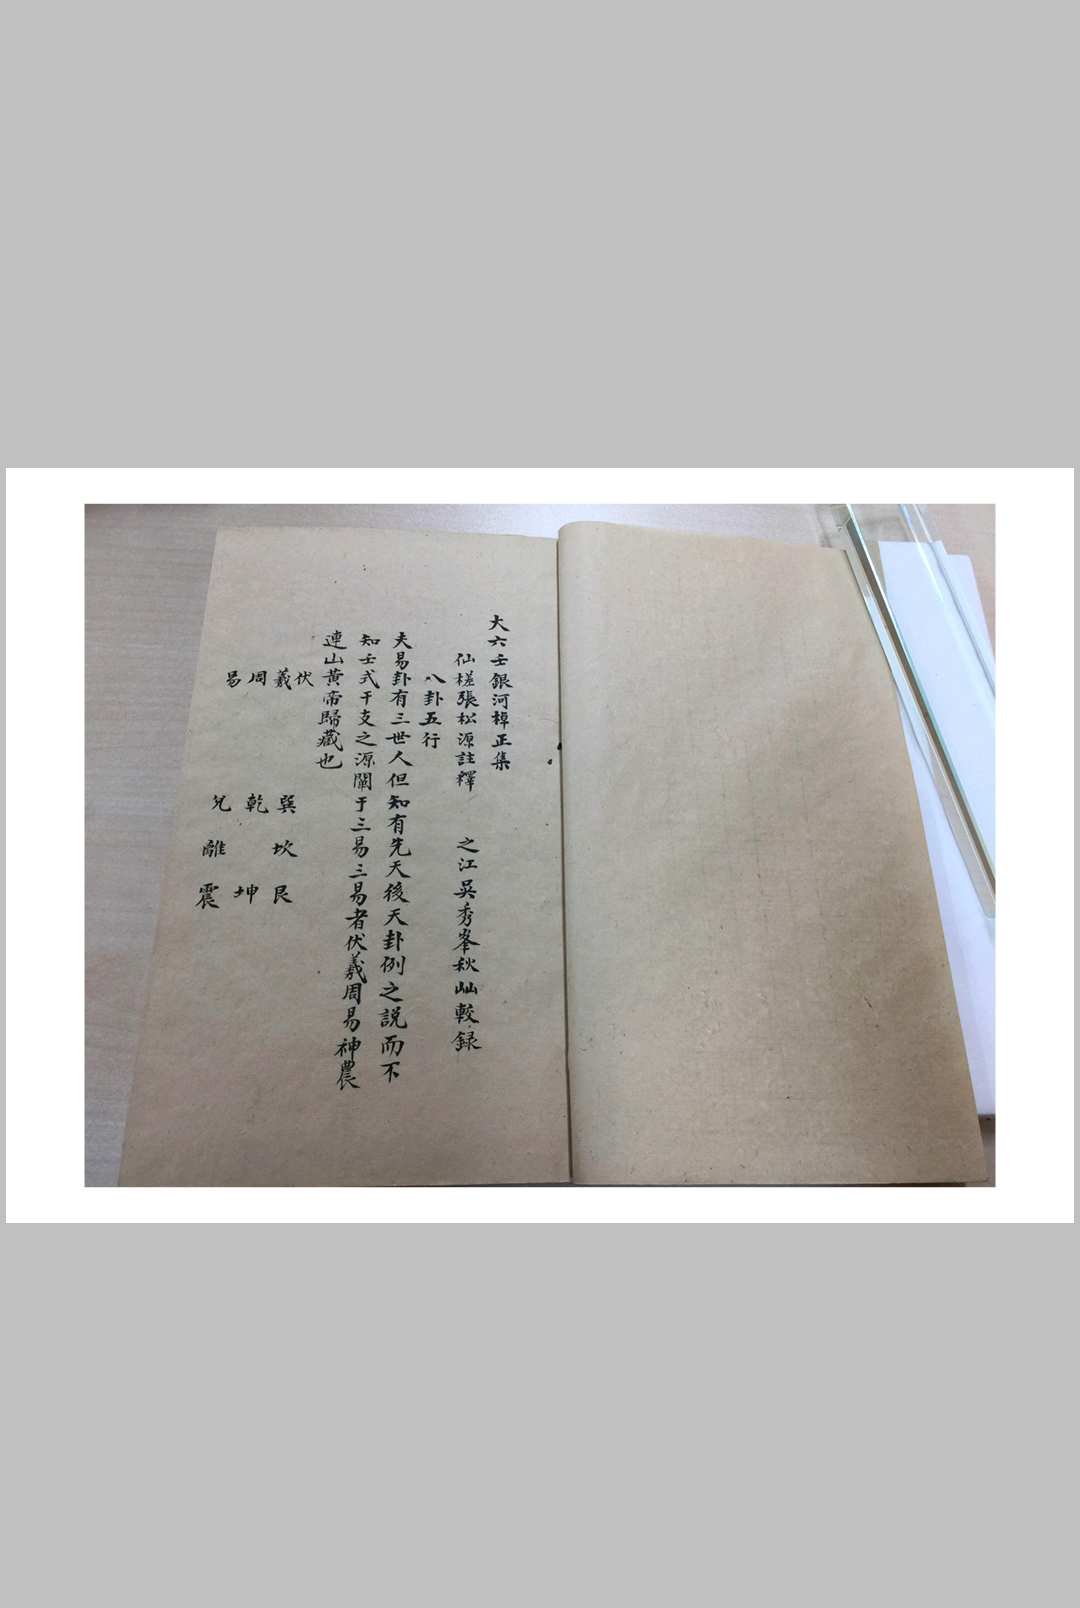 大六壬銀河棹正集
仙槎張松源註釋　之江吳秀峯秋屾較録
八卦五行
夫易卦有三世人但知有先天後天卦例之説而不
知壬式干支之源闡于三易三易者伏羲周易神農
連山黄帝歸藏也
伏羲周易
巽　坎　艮
乾　坤
兌　離　震